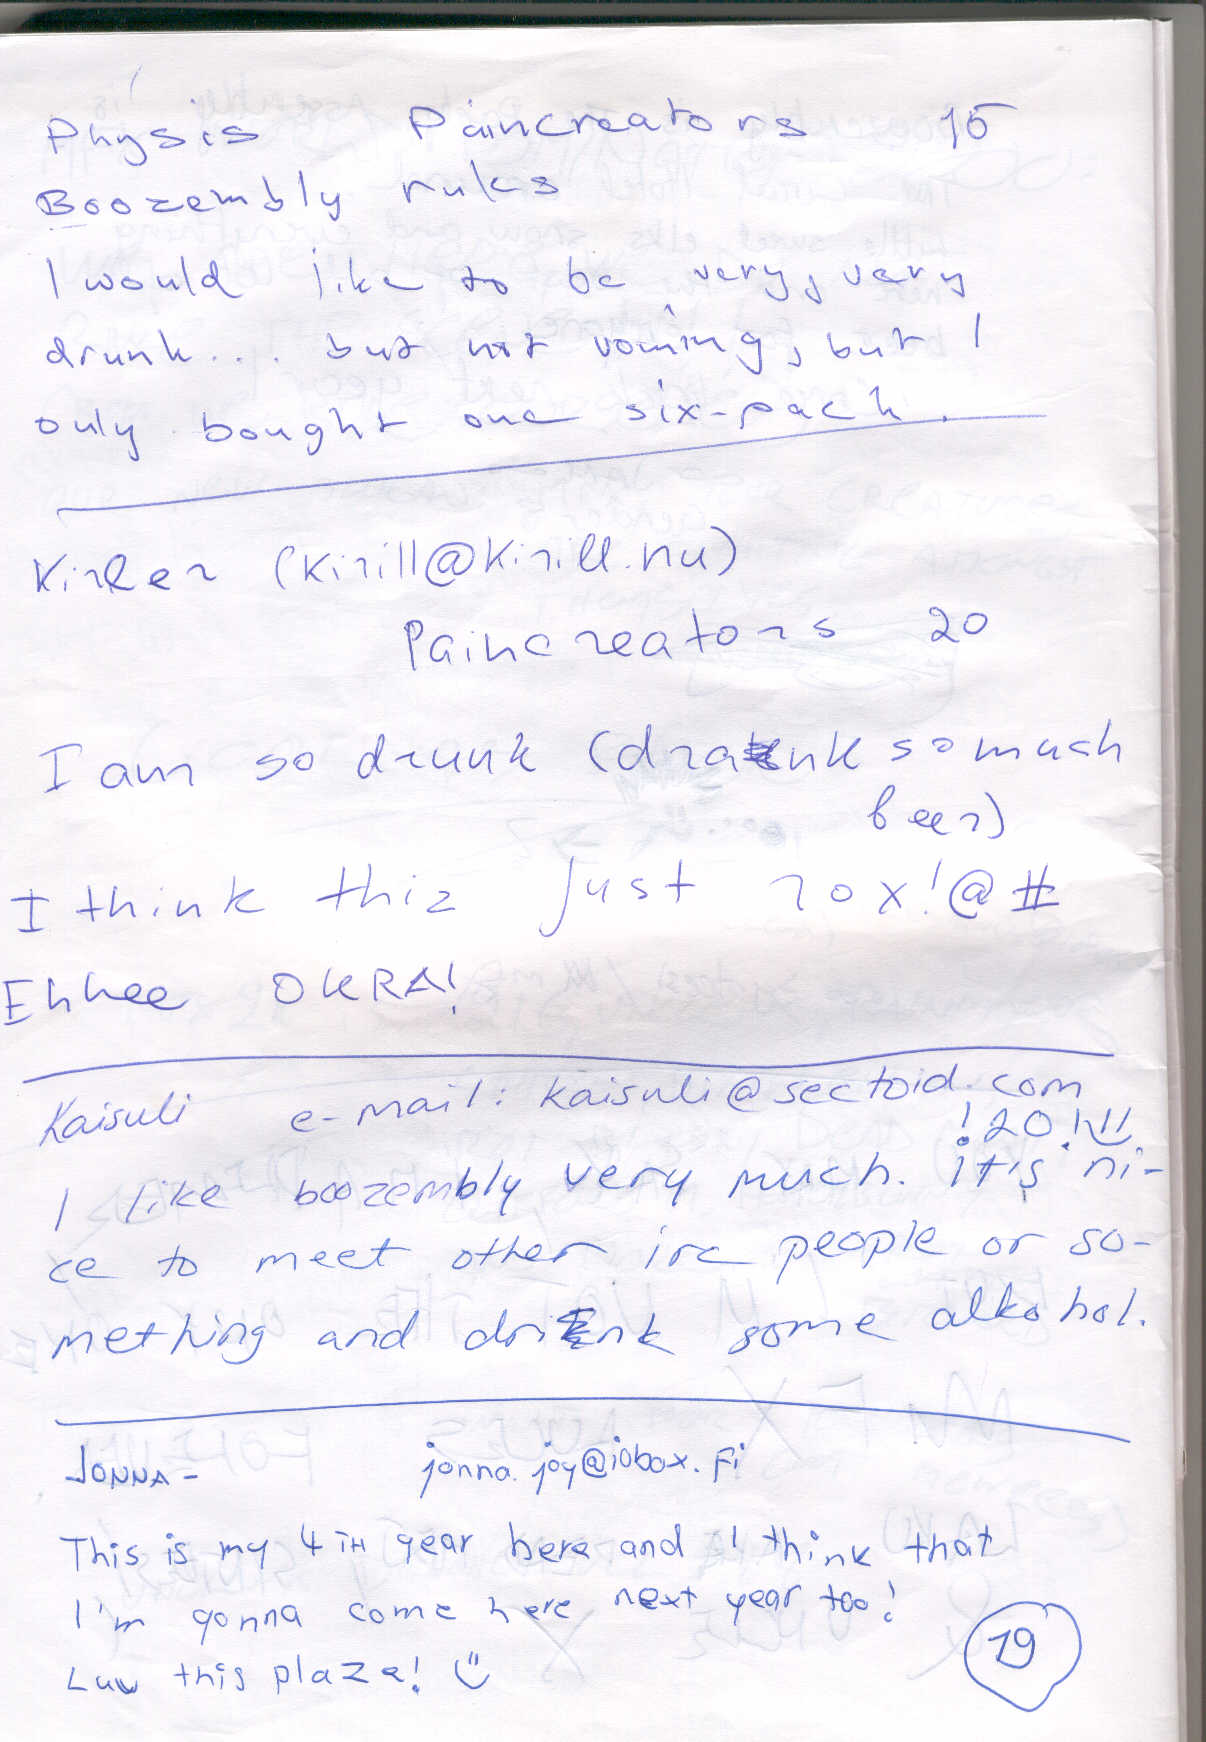 Physis Paincreators 15
Boozembly rules
I would like to be very, very
drunk.... but not voming, but I
only bought one six-pack.
Kirler (kirill@kirill.nu)
Paincreators 20
I am so drunk (drank so much
beer)
I think thiz just rox!@#
Ehhee OKRA!
Kaisuli e-mail: kaisuli@sectoid.com
!20!!!
I like boozembly very much. it's ni-
ce to meet other irc people or so-
mething and drink some alkohol.
JONNA- jonna.joy@iobox.fi
This is my 4TH year here and I think that
I'm gonna come here next year too!
Luv this plaze! ☺
19